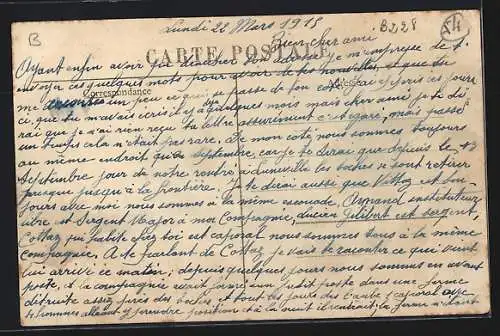 B
Lundi 22 Mars 1915
B228
54
Bien cher ami
CARTE POSTALE
Correspondance
Ayant enfin avoir pu trouver ton adresse je m'empresse de t'
envoyer ces quelques mots pour avoir de tes nouvelles et que tu
me un peu ce qui se passe de ton coté ces jours
ci, que tu m'avais écris il y a quelques mois mais cher ami je te di
rai que je n'ai rien reçu ta lettre assurément s'est égaré, mais passé
un temps cela n'était pas rare. De mon coté nous sommes toujours
au même endroit qu'en septembre, car je te dirai que depuis le 13
Septembre jour de notre rentrée à Lunéville les boches se sont retirer
jusque jusqu'à la frontière. Je te dirai aussi que Vittoz est tou
jours avec moi nous sommes à la même escouade, Armand instituteur
libre est Sergent Major à ma Compagnie, Lucien Gilibert est sergent,
Cottaz qui habite chez toi est caporal nous sommes tous à la même
compagnie. A te parlant de Cottaz je vais te raconter ce qui vient
lui arrivé ce matin; depuis quelques jours nous sommes en avant
poste, et la compagnie avait formé un petit poste dans une ferme
détruite assez près des boches et tout les jours l'aube 1 caporal avec
hommes allaient y prendre position et à la nuit il rentrait, la ferme n'étant